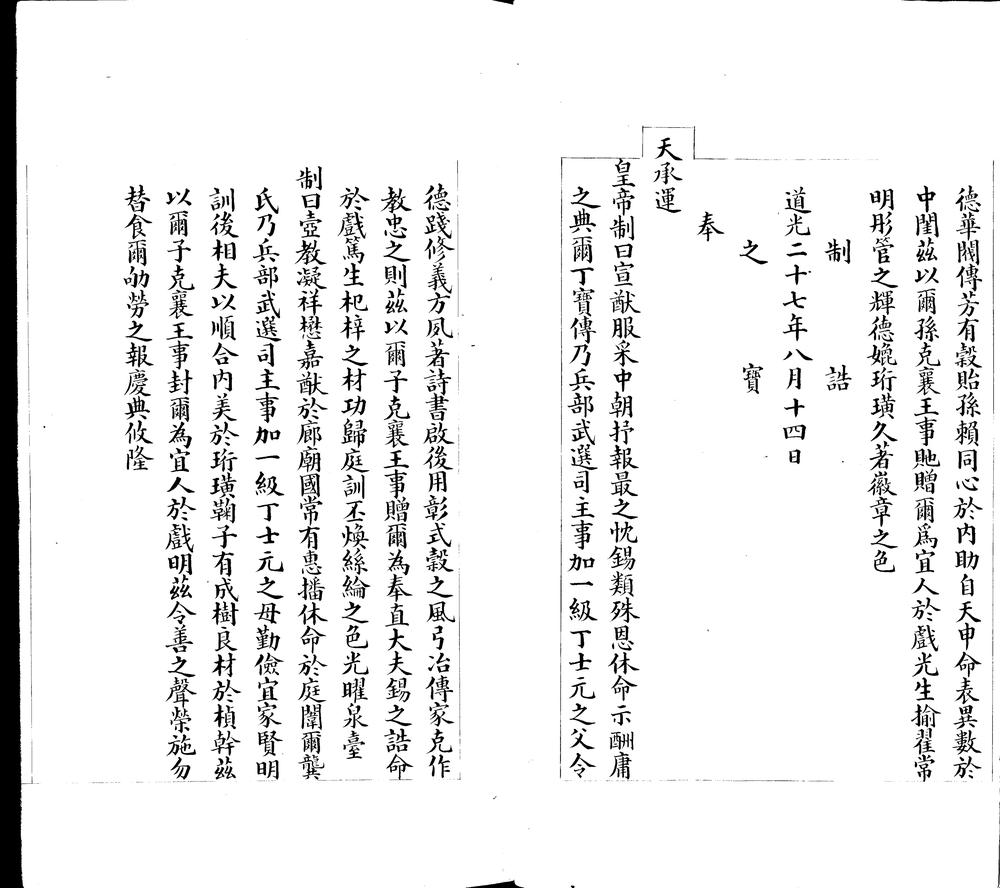 德華閥傳芳有穀貽孫賴同心於內助自天申命表異數於
中閨茲以爾孫克襄王事貤贈爾爲宜人於戲光生揄翟常
明彤管之輝德媲珩璜久著徽章之色
制誥
道光二十七年八月十四日
之寶
奉
天承運
皇帝制曰宣猷服采中朝抒報最之忱錫類殊恩休命示酬庸
之典爾丁寶傳乃兵部武選司主事加一級丁士元之父令
德踐修義方夙著詩書啟後用彰式穀之風弓冶傳家克作
教忠之則茲以爾子克襄王事贈爾為奉直大夫錫之誥命
於戲篤生杞梓之材功歸庭訓丕煥絲綸之色光曜泉臺
制曰壼教凝祥懋嘉猷於廊廟國常有惠播休命於庭闈爾龔
氏乃兵部武選司主事加一級丁士元之母勤儉宜家賢明
訓後相夫以順合內美於珩璜鞠子有成樹良材於楨幹茲
以爾子克襄王事封爾為宜人於戲明茲令善之聲榮施勿
替食爾劬勞之報慶典攸隆